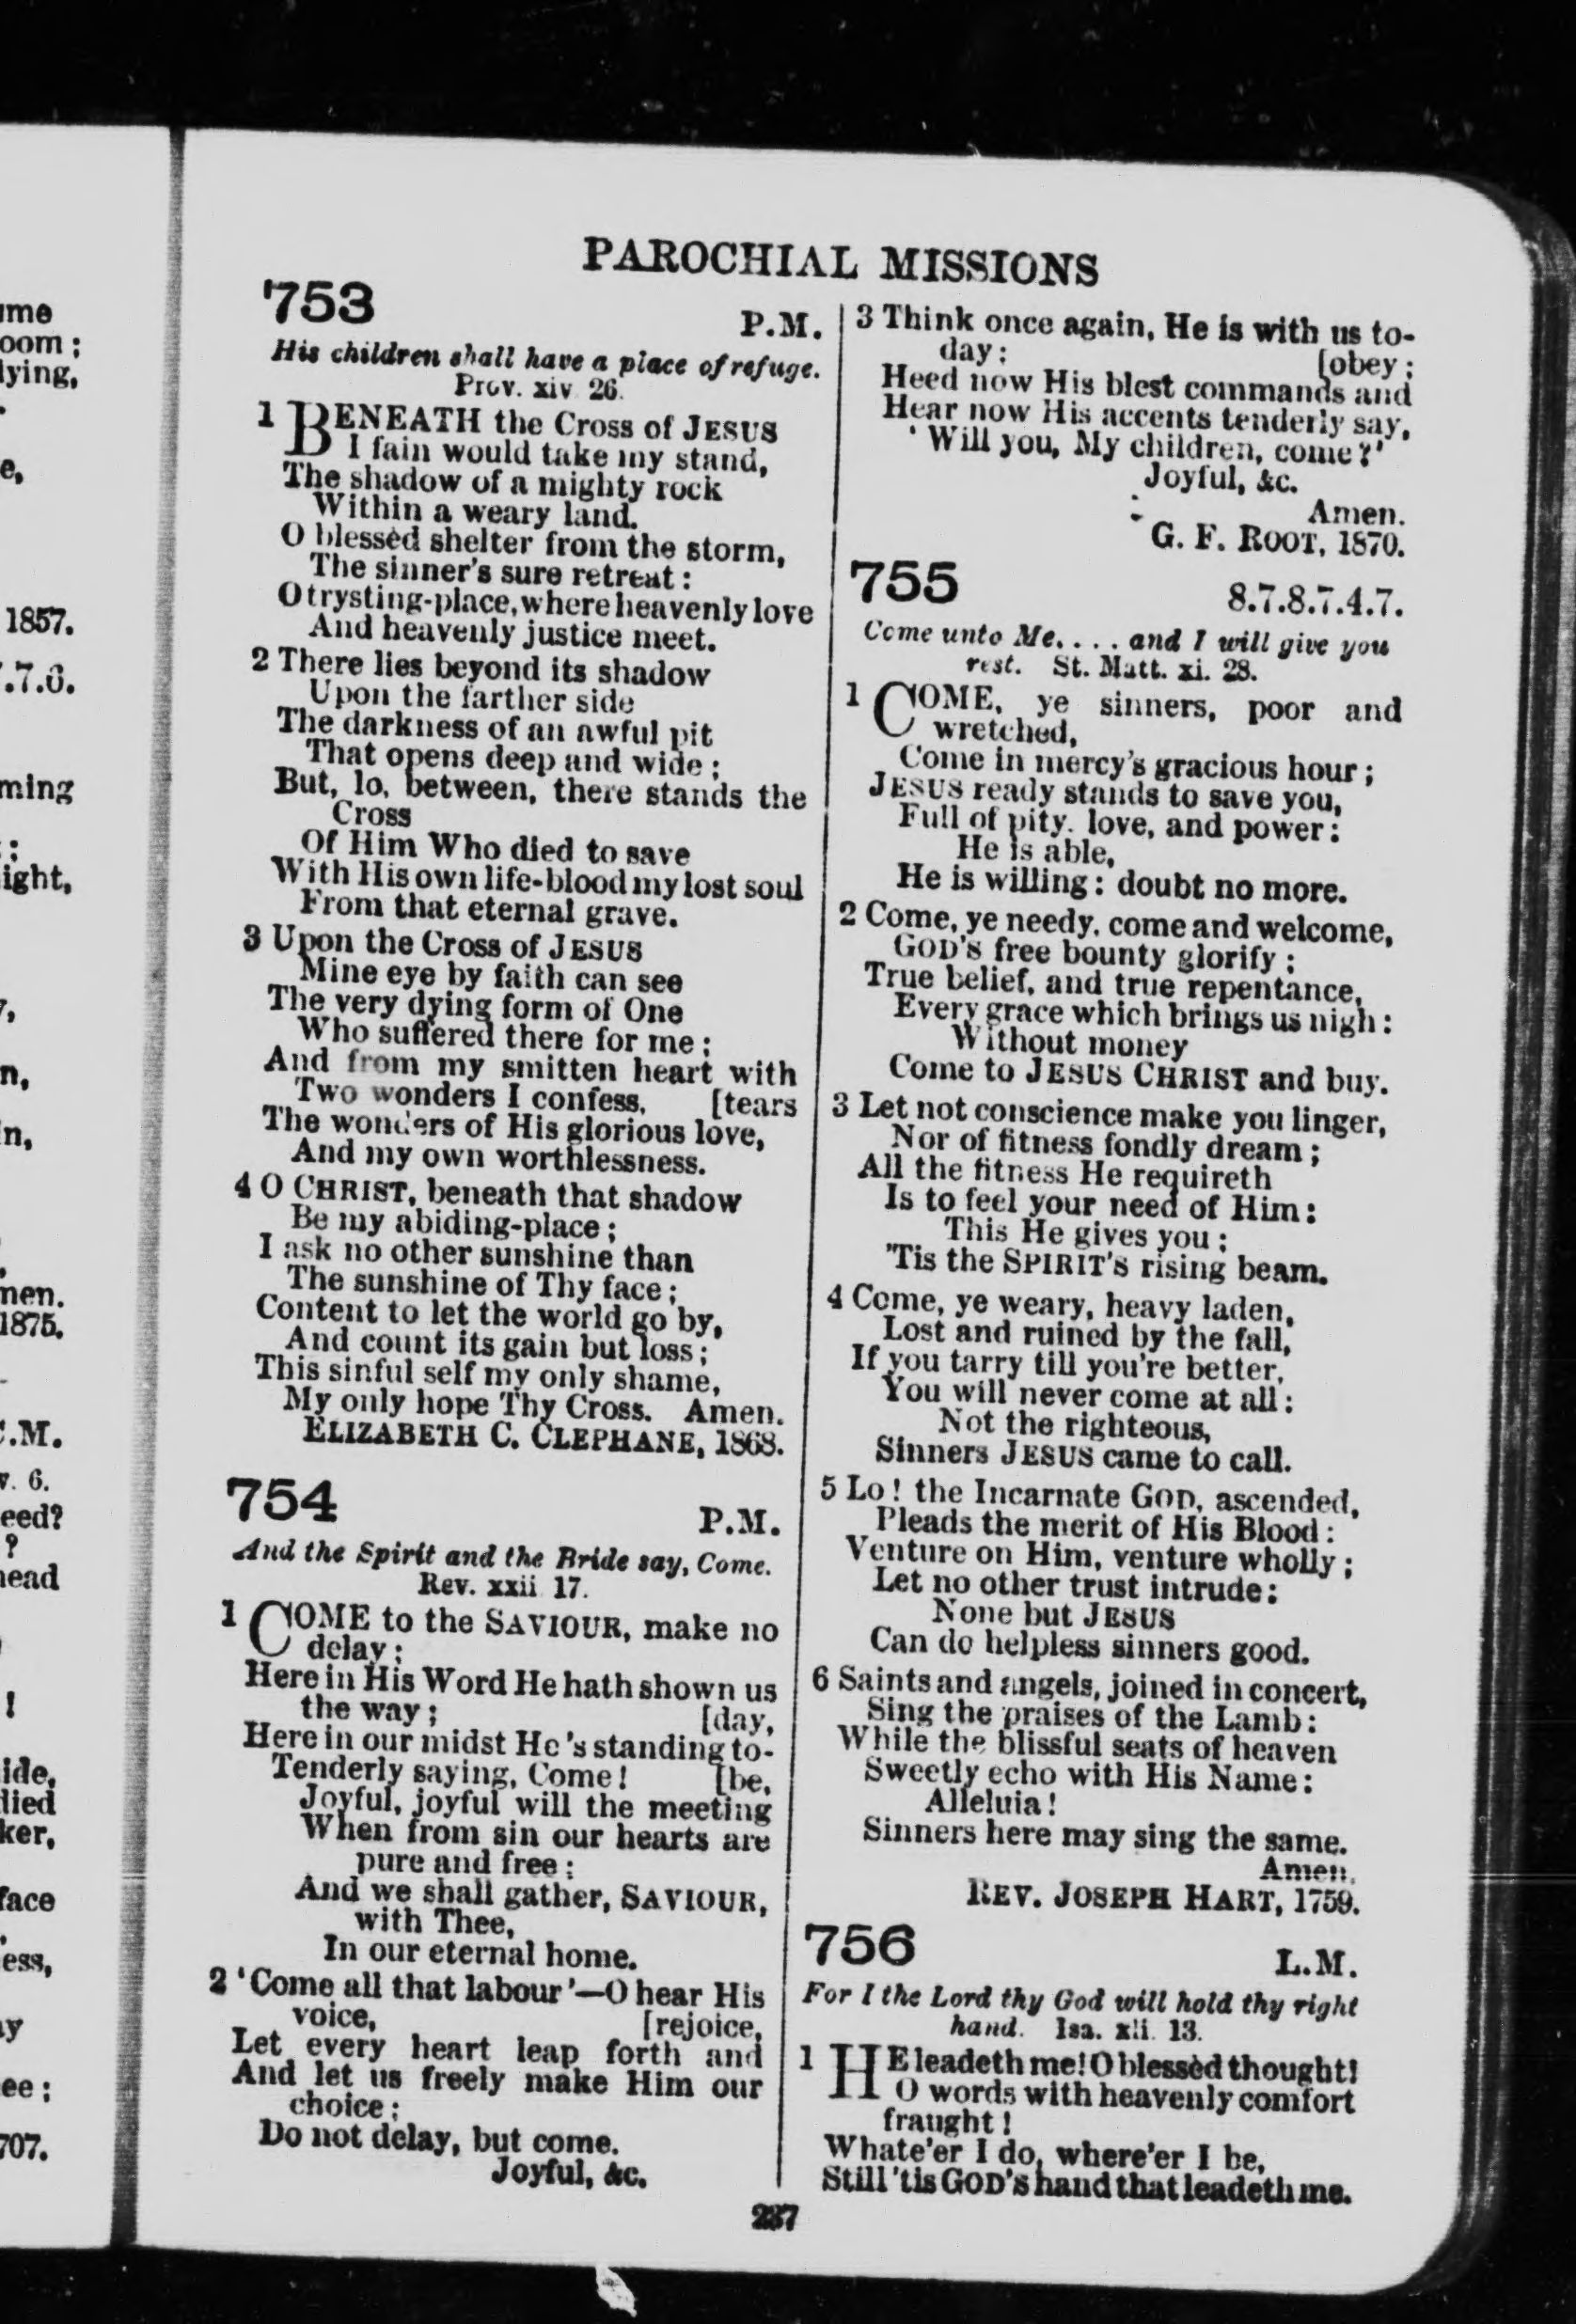 me
oom ;
lying,
e,
1857.
.7.6.
ming
;
ight,
n,
n,
men.
1875.
.M.
v. 6.
eed?
?
lead
!
ide,
lied
ker,
face
ess,
ay
ee ;
707.
PAROCHIAL MISSIONS
753
P.M.
His children shall have a place of refuge.
Prov. xiv 26.
1 BENEATH the Cross of JESUS
I fain would take my stand,
The shadow of a mighty rock
Within a weary land.
O blessèd shelter from the storm,
The sinner's sure retreat :
O trysting-place, where heavenly love
And heavenly justice meet.
2 There lies beyond its shadow
Upon the farther side
The darkness of an awful pit
That opens deep and wide ;
But, lo, between, there stands the
Cross
Of Him Who died to save
With His own life-blood my lost soul
From that eternal grave.
3 Upon the Cross of JESUS
Mine eye by faith can see
The very dying form of One
Who suffered there for me ;
And from my smitten heart with
Two wonders I confess, [tears
The wonders of His glorious love,
And my own worthlessness.
4 O CHRIST, beneath that shadow
Be my abiding-place ;
I ask no other sunshine than
The sunshine of Thy face ;
Content to let the world go by,
And count its gain but loss ;
This sinful self my only shame,
My only hope Thy Cross. Amen.
ELIZABETH C. CLEPHANE, 1868.
754
P.M.
And the Spirit and the Bride say, Come.
Rev. xxii 17.
1 COME to the SAVIOUR, make no
delay ;
Here in His Word He hath shown us
the way ; [day,
Here in our midst He 's standing to-
Tenderly saying, Come ! [be,
Joyful, joyful will the meeting
When from sin our hearts are
pure and free ;
And we shall gather, SAVIOUR,
with Thee,
In our eternal home.
2 'Come all that labour'—O hear His
voice, [rejoice,
Let every heart leap forth and
And let us freely make Him our
choice ;
Do not delay, but come.
Joyful, &c.
3 Think once again, He is with us to-
day ; [obey ;
Heed now His blest commands and
Hear now His accents tenderly say,
' Will you, My children, come ?'
Joyful, &c.
Amen.
G. F. ROOT, 1870.
755
8.7.8.7.4.7.
Come unto Me. . . . and I will give you
rest. St. Matt. xi. 28.
1 COME, ye sinners, poor and
wretched,
Come in mercy's gracious hour ;
JESUS ready stands to save you,
Full of pity, love, and power :
He is able,
He is willing : doubt no more.
2 Come, ye needy, come and welcome,
GOD'S free bounty glorify ;
True belief, and true repentance,
Every grace which brings us nigh :
Without money
Come to JESUS CHRIST and buy.
3 Let not conscience make you linger,
Nor of fitness fondly dream ;
All the fitness He requireth
Is to feel your need of Him :
This He gives you ;
'Tis the SPIRIT'S rising beam.
4 Come, ye weary, heavy laden,
Lost and ruined by the fall,
If you tarry till you're better,
You will never come at all :
Not the righteous,
Sinners JESUS came to call.
5 Lo ! the Incarnate GOD, ascended,
Pleads the merit of His Blood :
Venture on Him, venture wholly ;
Let no other trust intrude :
None but JESUS
Can do helpless sinners good.
6 Saints and angels, joined in concert,
Sing the praises of the Lamb :
While the blissful seats of heaven
Sweetly echo with His Name :
Alleluia !
Sinners here may sing the same.
Amen.
REV. JOSEPH HART, 1759.
756
L.M.
For I the Lord thy God will hold thy right
hand. Isa. xli. 13.
1 HE leadeth me! O blessèd thought!
O words with heavenly comfort
fraught !
Whate'er I do, where'er I be,
Still 'tis GOD'S hand that leadeth me.
237